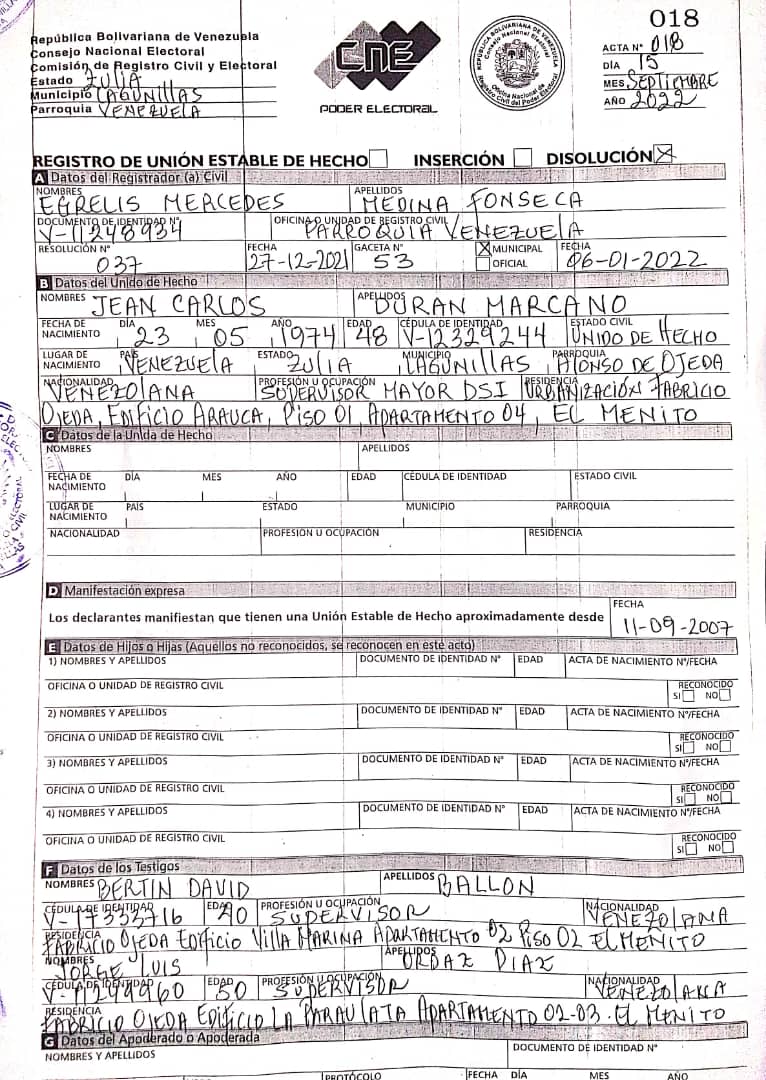 018
República Bolivariana de Venezuela
Consejo Nacional Electoral
Comisión de Registro Civil y Electoral
Estado ZULIA
Municipio LAGUNILLAS
Parroquia VENEZUELA
CNE
PODER ELECTORAL
REPÚBLICA BOLIVARIANA DE VENEZUELA
Oficina Nacional de
Registro Civil del Poder Electoral
ACTA N° 018
DÍA 15
MES SEPTIEMBRE
AÑO 2022
REGISTRO DE UNIÓN ESTABLE DE HECHO INSERCIÓN DISOLUCIÓN X
A Datos del Registrador (a) Civil
NOMBRES APELLIDOS
EGRELIS MERCEDES MEDINA FONSECA
DOCUMENTO DE IDENTIDAD N° OFICINA O UNIDAD DE REGISTRO CIVIL
V-11248934 PARROQUIA VENEZUELA
RESOLUCIÓN N° FECHA GACETA N° X MUNICIPAL FECHA
037 27-12-2021 53 OFICIAL 06-01-2022
B Datos del Unido de Hecho
NOMBRES JEAN CARLOS APELLIDOS DURAN MARCANO
FECHA DE NACIMIENTO DÍA 23 MES 05 AÑO 1974 EDAD 48 CÉDULA DE IDENTIDAD V-12329244 ESTADO CIVIL UNIDO DE HECHO
LUGAR DE NACIMIENTO PAÍS VENEZUELA ESTADO ZULIA MUNICIPIO LAGUNILLAS PARROQUIA ALONSO DE OJEDA
NACIONALIDAD VENEZOLANA PROFESIÓN U OCUPACIÓN SUPERVISOR MAYOR DSI RESIDENCIA URBANIZACIÓN FABRICIO
OJEDA, EDIFICIO ARAUCA, PISO 01, APARTAMENTO 04, EL MENITO
C Datos de la Unida de Hecho
NOMBRES APELLIDOS
FECHA DE NACIMIENTO DÍA MES AÑO EDAD CÉDULA DE IDENTIDAD ESTADO CIVIL
LUGAR DE NACIMIENTO PAÍS ESTADO MUNICIPIO PARROQUIA
NACIONALIDAD PROFESIÓN U OCUPACIÓN RESIDENCIA
D Manifestación expresa
FECHA
Los declarantes manifiestan que tienen una Unión Estable de Hecho aproximadamente desde 11-09-2007
E Datos de Hijos o Hijas (Aquellos no reconocidos, se reconocen en este acto)
1) NOMBRES Y APELLIDOS DOCUMENTO DE IDENTIDAD N° EDAD ACTA DE NACIMIENTO N°/FECHA
OFICINA O UNIDAD DE REGISTRO CIVIL RECONOCIDO
SI NO
2) NOMBRES Y APELLIDOS DOCUMENTO DE IDENTIDAD N° EDAD ACTA DE NACIMIENTO N°/FECHA
OFICINA O UNIDAD DE REGISTRO CIVIL RECONOCIDO
SI NO
3) NOMBRES Y APELLIDOS DOCUMENTO DE IDENTIDAD N° EDAD ACTA DE NACIMIENTO N°/FECHA
OFICINA O UNIDAD DE REGISTRO CIVIL RECONOCIDO
SI NO
4) NOMBRES Y APELLIDOS DOCUMENTO DE IDENTIDAD N° EDAD ACTA DE NACIMIENTO N°/FECHA
OFICINA O UNIDAD DE REGISTRO CIVIL RECONOCIDO
SI NO
F Datos de los Testigos
NOMBRES BERTIN DAVID APELLIDOS BALLON
CÉDULA DE IDENTIDAD EDAD PROFESIÓN U OCUPACIÓN NACIONALIDAD
V-17335716 40 SUPERVISOR VENEZOLANA
RESIDENCIA
FABRICIO OJEDA EDIFICIO VILLA MARINA APARTAMENTO 02 PISO 02 EL MENITO
NOMBRES JORGE LUIS APELLIDOS URDAZ DIAZ
CÉDULA DE IDENTIDAD EDAD PROFESIÓN U OCUPACIÓN NACIONALIDAD
V-11249960 50 SUPERVISOR VENEZOLANA
RESIDENCIA
FABRICIO OJEDA EDIFICIO LA PARAULATA APARTAMENTO 02-03. EL MENITO
G Datos del Apoderado o Apoderada
NOMBRES Y APELLIDOS DOCUMENTO DE IDENTIDAD N°
PROTÓCOLO FECHA DÍA MES AÑO